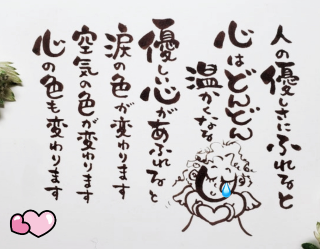 人の優しさにふれると
心はどんどん
温かくなる
優しい心があふれると
涙の色が変わります
空気の色が変わります
心の色も変わります